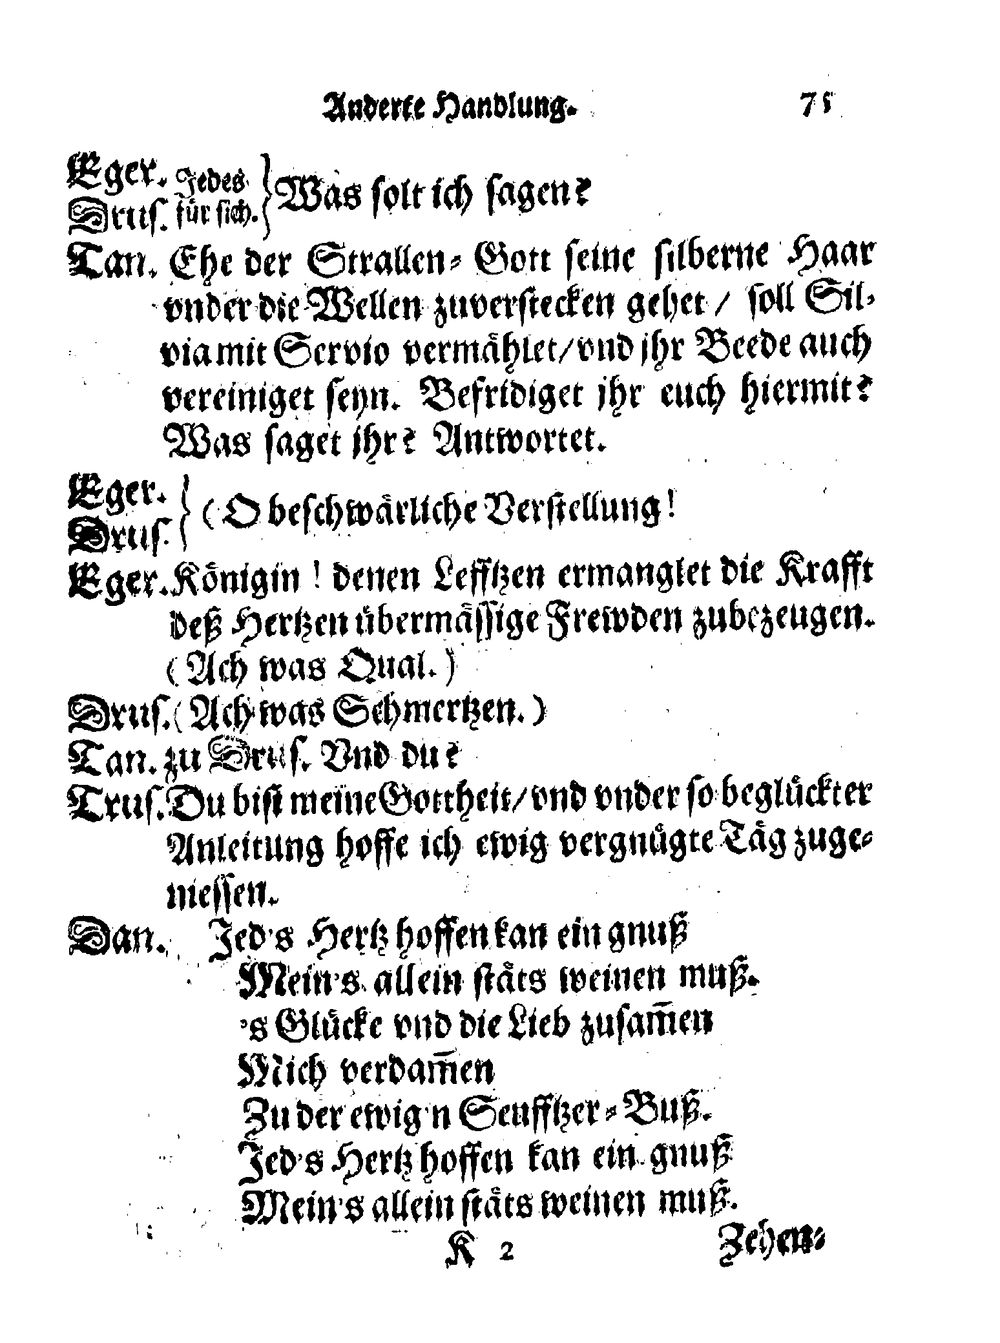 Anderte Handlung. 75
Eger. Jedes
Drus. für sich. } Was solt ich sagen?
Tan. Ehe der Strallen-Gott seine silberne Haar
vnder die Wellen zuverstecken gehet / soll Sil-
via mit Servio vermählet/vnd jhr Beede auch
vereiniget seyn. Befridiget jhr euch hiermit?
Was saget jhr? Antwortet.
Eger.
Drus. } (O beschwärliche Verstellung!
Eger. Königin! denen Lefftzen ermanglet die Krafft
deß Hertzen übermässige Frewden zubezeugen.
(Ach was Qual.)
Drus. (Ach was Schmertzen.)
Tan. zu Drus. Vnd du?
Trus. Du bist meine Gottheit/vnd vnder so beglückter
Anleitung hoffe ich ewig vergnügte Täg zuge-
niessen.
Dan. Jed's Hertz hoffen kan ein gnuß
Mein's allein stäts weinen muß.
's Glücke vnd die Lieb zusam̄en
Mich verdam̄en
Zu der ewig'n Seufftzer-Buß.
Jed's Hertz hoffen kan ein gnuß
Mein's allein stäts weinen muß.
K 2 Zehen-